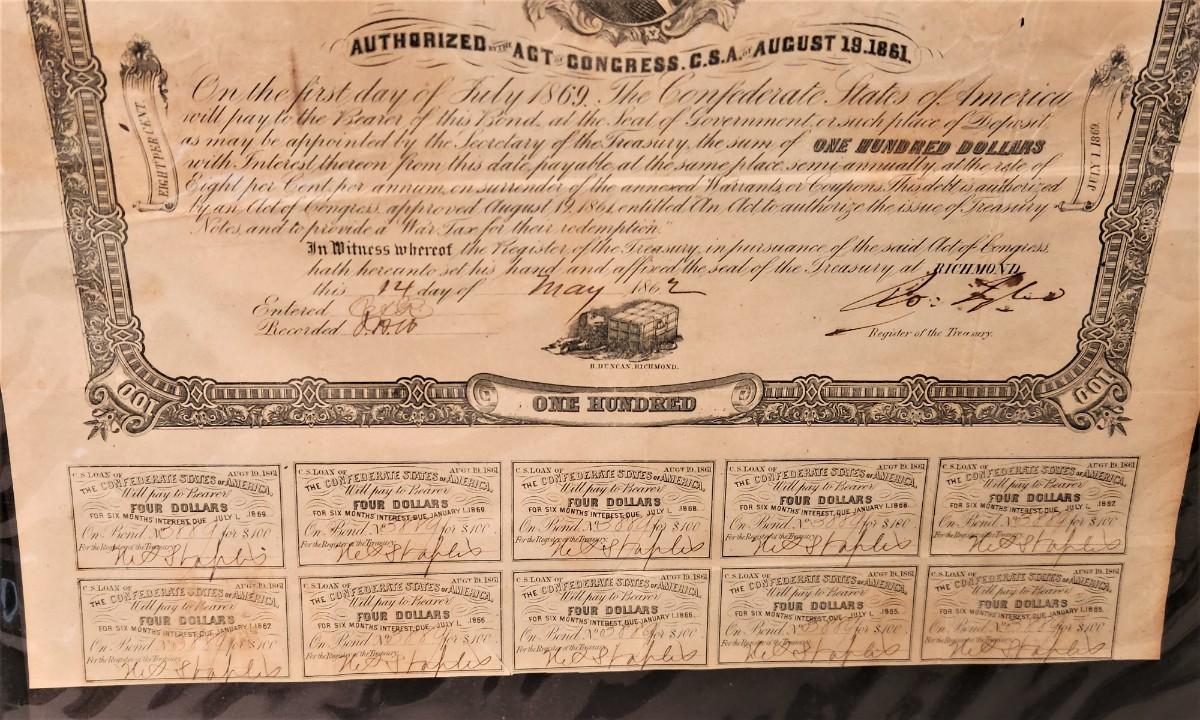 AUTHORIZED BY THE ACT OF CONGRESS. C.S.A. OF AUGUST 19.1861.
EIGHT PER CENT.
JULY 1. 1869.
On the first day of July 1869. The Confederate States of America
will pay to the Bearer of this Bond, at the Seat of Government, or such place of Deposit
as may be appointed by the Secretary of the Treasury, the sum of ONE HUNDRED DOLLARS
with Interest thereon from this date, payable at the same place semi-annually, at the rate of
Eight per Cent, per annum, on surrender of the annexed Warrants or Coupons. This debt is authorized
by an Act of Congress, approved August 19, 1861, entitled "An Act to authorize the issue of Treasury
Notes, and to provide a War Tax for their redemption."
In Witness whereof the Register of the Treasury, in pursuance of the said Act of Congress,
hath hereunto set his hand and affixed the seal of the Treasury at RICHMOND,
this 14 day of May 1862
Entered
Recorded
Register of the Treasury.
B. DUNCAN, RICHMOND.
100
ONE HUNDRED
100
C.S. LOAN OF AUGT 19, 1861
THE CONFEDERATE STATES OF AMERICA,
Will pay to Bearer
FOUR DOLLARS
FOR SIX MONTHS INTEREST, DUE JULY 1, 1869.
On Bond No for $100
For the Register of the Treasury.
C.S. LOAN OF AUGT 19, 1861
THE CONFEDERATE STATES OF AMERICA,
Will pay to Bearer
FOUR DOLLARS
FOR SIX MONTHS INTEREST, DUE JANUARY 1, 1869.
On Bond No for $100
For the Register of the Treasury.
C.S. LOAN OF AUGT 19, 1861
THE CONFEDERATE STATES OF AMERICA,
Will pay to Bearer
FOUR DOLLARS
FOR SIX MONTHS INTEREST, DUE JULY 1, 1868.
On Bond No for $100
For the Register of the Treasury.
C.S. LOAN OF AUGT 19, 1861
THE CONFEDERATE STATES OF AMERICA,
Will pay to Bearer
FOUR DOLLARS
FOR SIX MONTHS INTEREST, DUE JANUARY 1, 1868.
On Bond No for $100
For the Register of the Treasury.
C.S. LOAN OF AUGT 19, 1861
THE CONFEDERATE STATES OF AMERICA,
Will pay to Bearer
FOUR DOLLARS
FOR SIX MONTHS INTEREST, DUE JULY 1, 1867.
On Bond No for $100
For the Register of the Treasury.
C.S. LOAN OF AUGT 19, 1861
THE CONFEDERATE STATES OF AMERICA,
Will pay to Bearer
FOUR DOLLARS
FOR SIX MONTHS INTEREST, DUE JANUARY 1, 1867.
On Bond No for $100
For the Register of the Treasury.
C.S. LOAN OF AUGT 19, 1861
THE CONFEDERATE STATES OF AMERICA,
Will pay to Bearer
FOUR DOLLARS
FOR SIX MONTHS INTEREST, DUE JULY 1, 1866.
On Bond No for $100
For the Register of the Treasury.
C.S. LOAN OF AUGT 19, 1861
THE CONFEDERATE STATES OF AMERICA,
Will pay to Bearer
FOUR DOLLARS
FOR SIX MONTHS INTEREST, DUE JANUARY 1, 1866.
On Bond No for $100
For the Register of the Treasury.
C.S. LOAN OF AUGT 19, 1861
THE CONFEDERATE STATES OF AMERICA,
Will pay to Bearer
FOUR DOLLARS
FOR SIX MONTHS INTEREST, DUE JULY 1, 1865.
On Bond No for $100
For the Register of the Treasury.
C.S. LOAN OF AUGT 19, 1861
THE CONFEDERATE STATES OF AMERICA,
Will pay to Bearer
FOUR DOLLARS
FOR SIX MONTHS INTEREST, DUE JANUARY 1, 1865.
On Bond No for $100
For the Register of the Treasury.